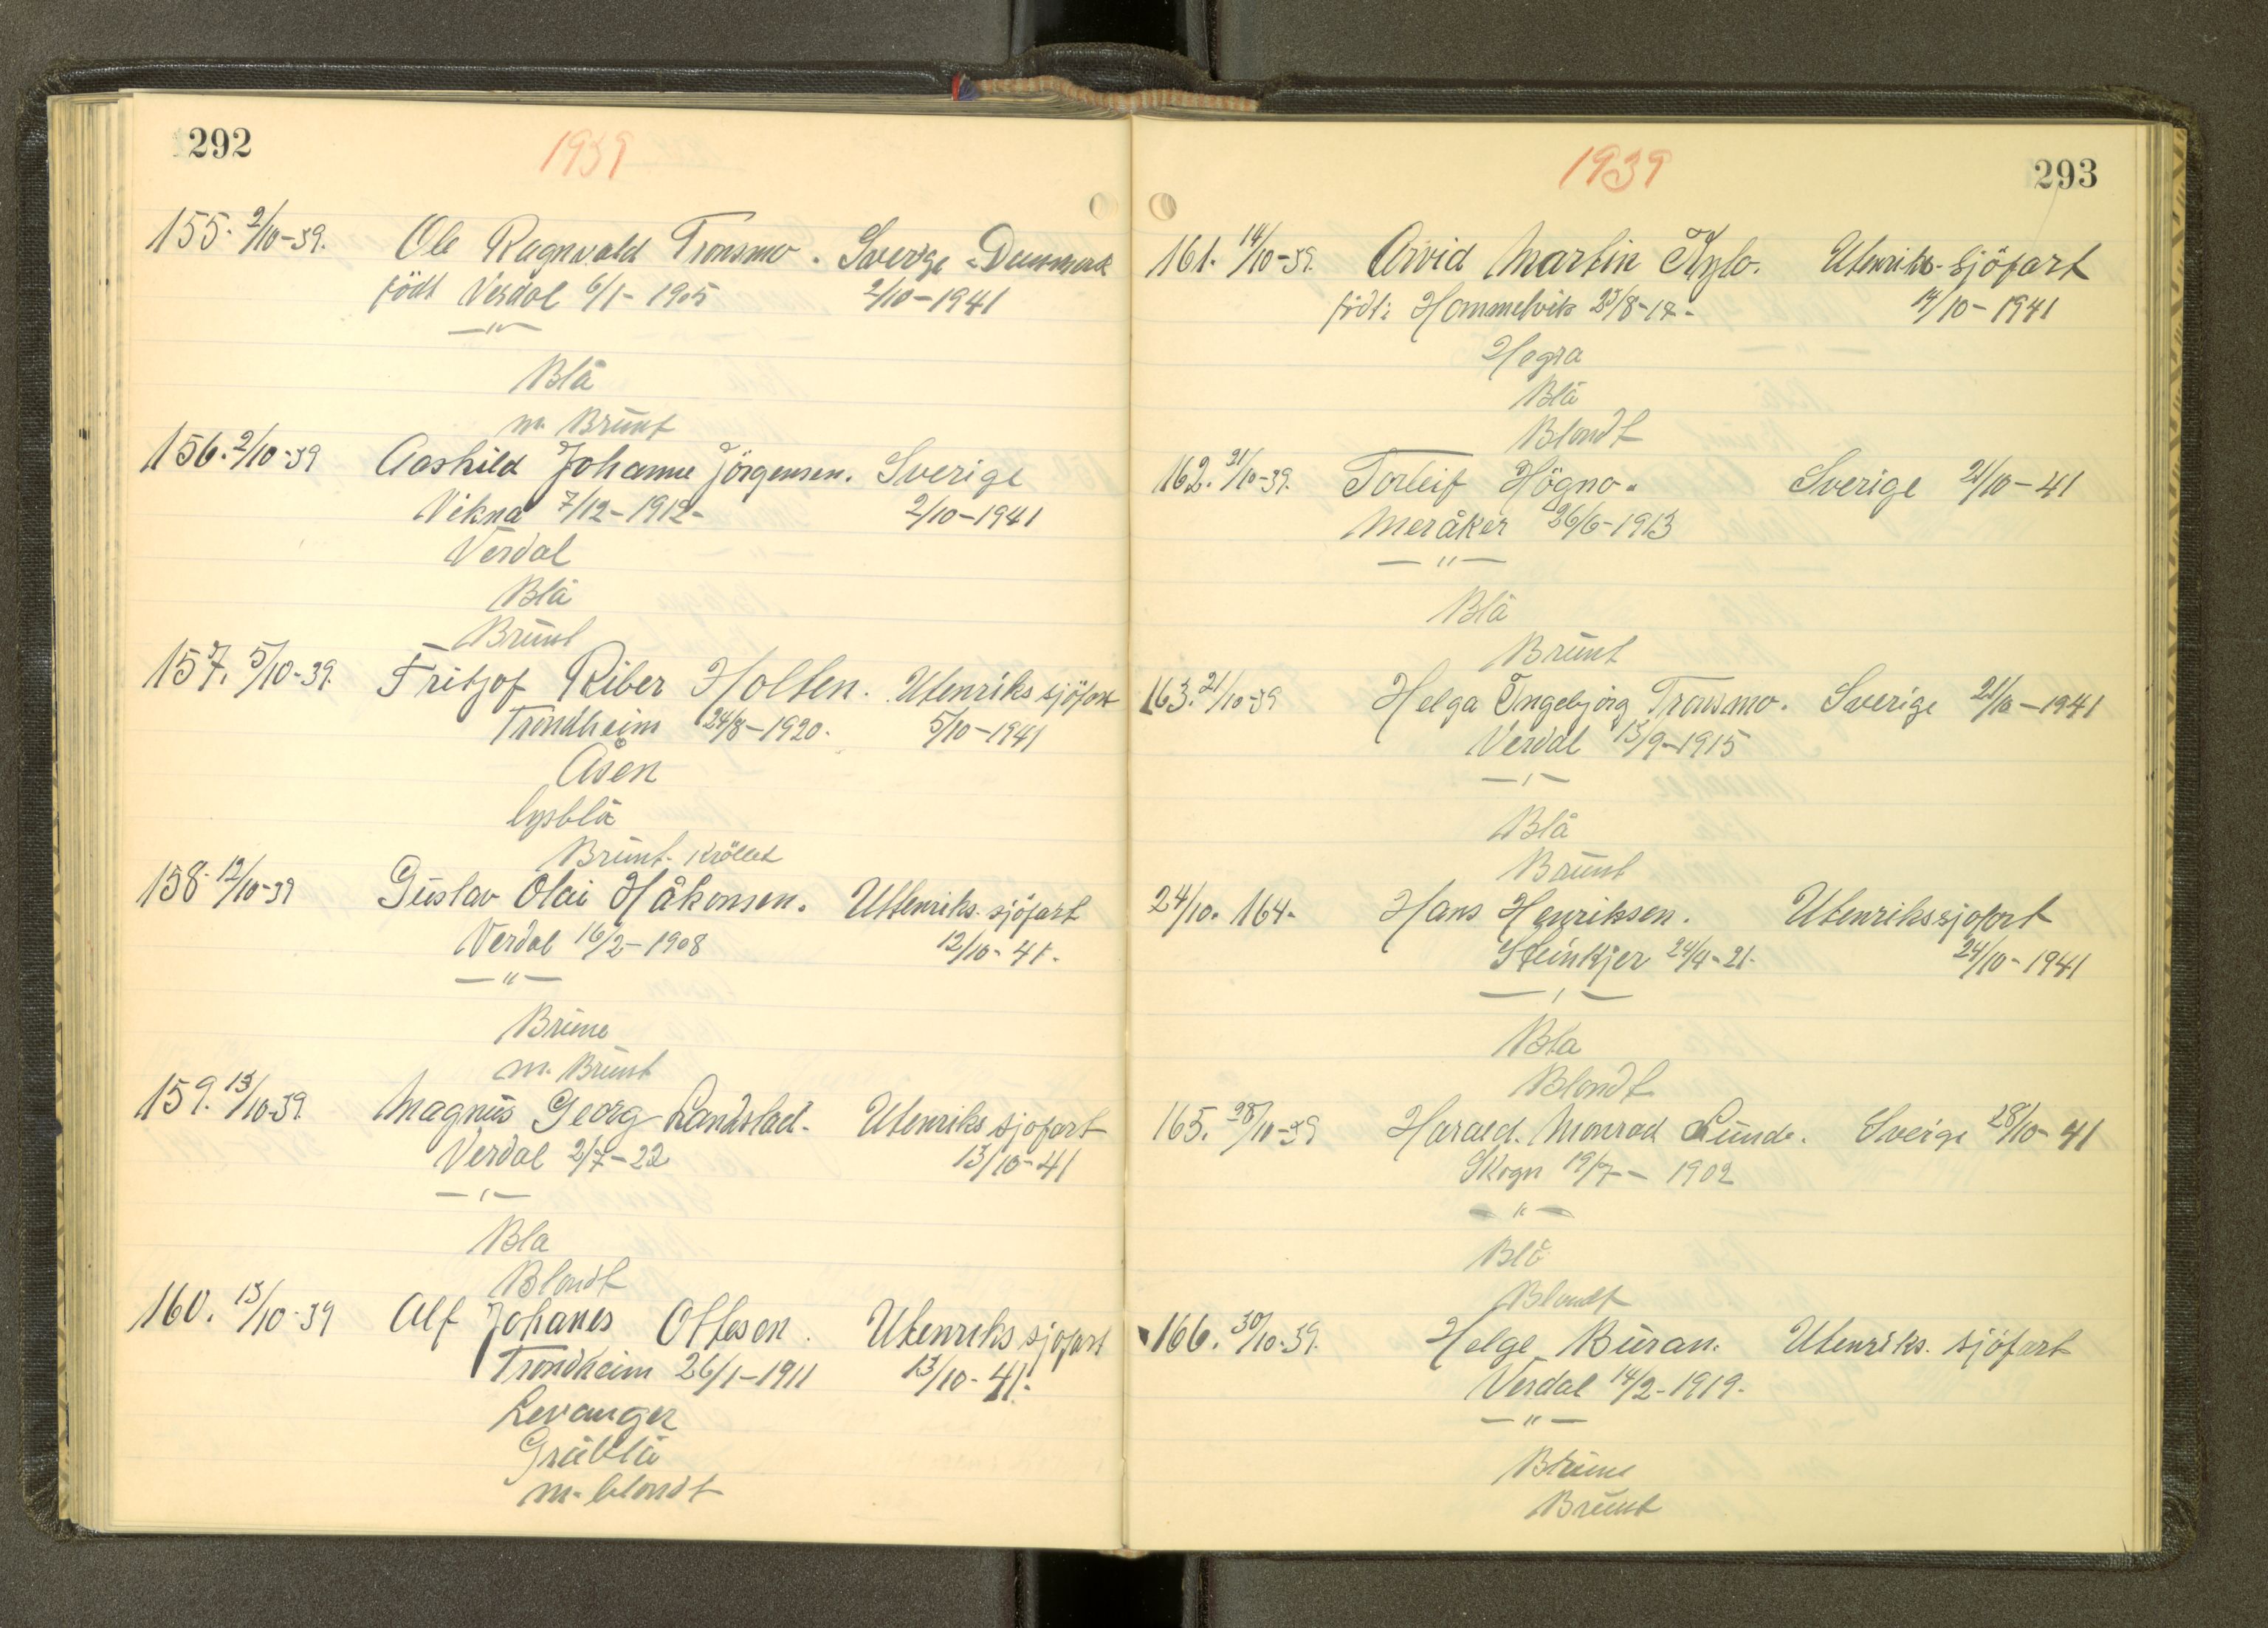 292
1939
155. 2/10-39. Ole Ragnvald Tronsmo. Sverige - Danmark
födt Verdal 6/1-1905 2/10-1941
—"—
Blå
m. Brunt
156. 2/10-39 Aashild Johanne Jörgensen. Sverige
Vikna 7/12-1912- 2/10-1941
Verdal
Blå
Brunt
157. 5/10-39. Fritjof Riber Holten. Utenriks sjöfart
Trondheim 24/8-1920. 5/10-1941
Åsen
lysblå
Brunt. Kröllet
158. 12/10-39 Gustav Olai Håkonsen. Uttenriks. sjöfart
Verdal 16/2-1908 12/10-41.
—"—
Brune
m. Brunt
159. 13/10-39. Magnus Georg Landstad. Utenriks sjofart
Verdal 2/7-22 13/10-41
—"—
Bla
Blondt
160. 13/10-39 Alf Johanes Ottesen. Utenriks sjofart
Trondheim 26/1-1911 13/10-41.
Levanger
Gråblå
m. blondt
1939
293
161. 14/10-39. Arvid Martin Kylo. Utenriks-sjöfart
födt: Hommelvik 23/8-17- 14/10-1941
Hegra
Blå
Blondt
162. 21/10-39. Torleif Högno. Sverige 21/10-41
Meråker 26/6-1913
—"—
Blå
Brunt
163. 21/10-39 Helga Ingebjörg Tronsmo. Sverige 21/10-1941
Verdal 13/9-1915
—"—
Blå
Brunt
24/10. 164. Hans Henriksen. Utenrikssjofart
Steinkjer 24/4-21. 24/10-1941
—"—
Bla
Blondt
165. 28/10-39 Harald. Monrad Lunde. Sverige 28/10-41
Skogn 19/7-1902
—"—
Blå
Blondt
166. 30/10-39. Helge Buran. Utenriks. sjöfart
Verdal 14/2-1919.
—"—
Brune
Brunt